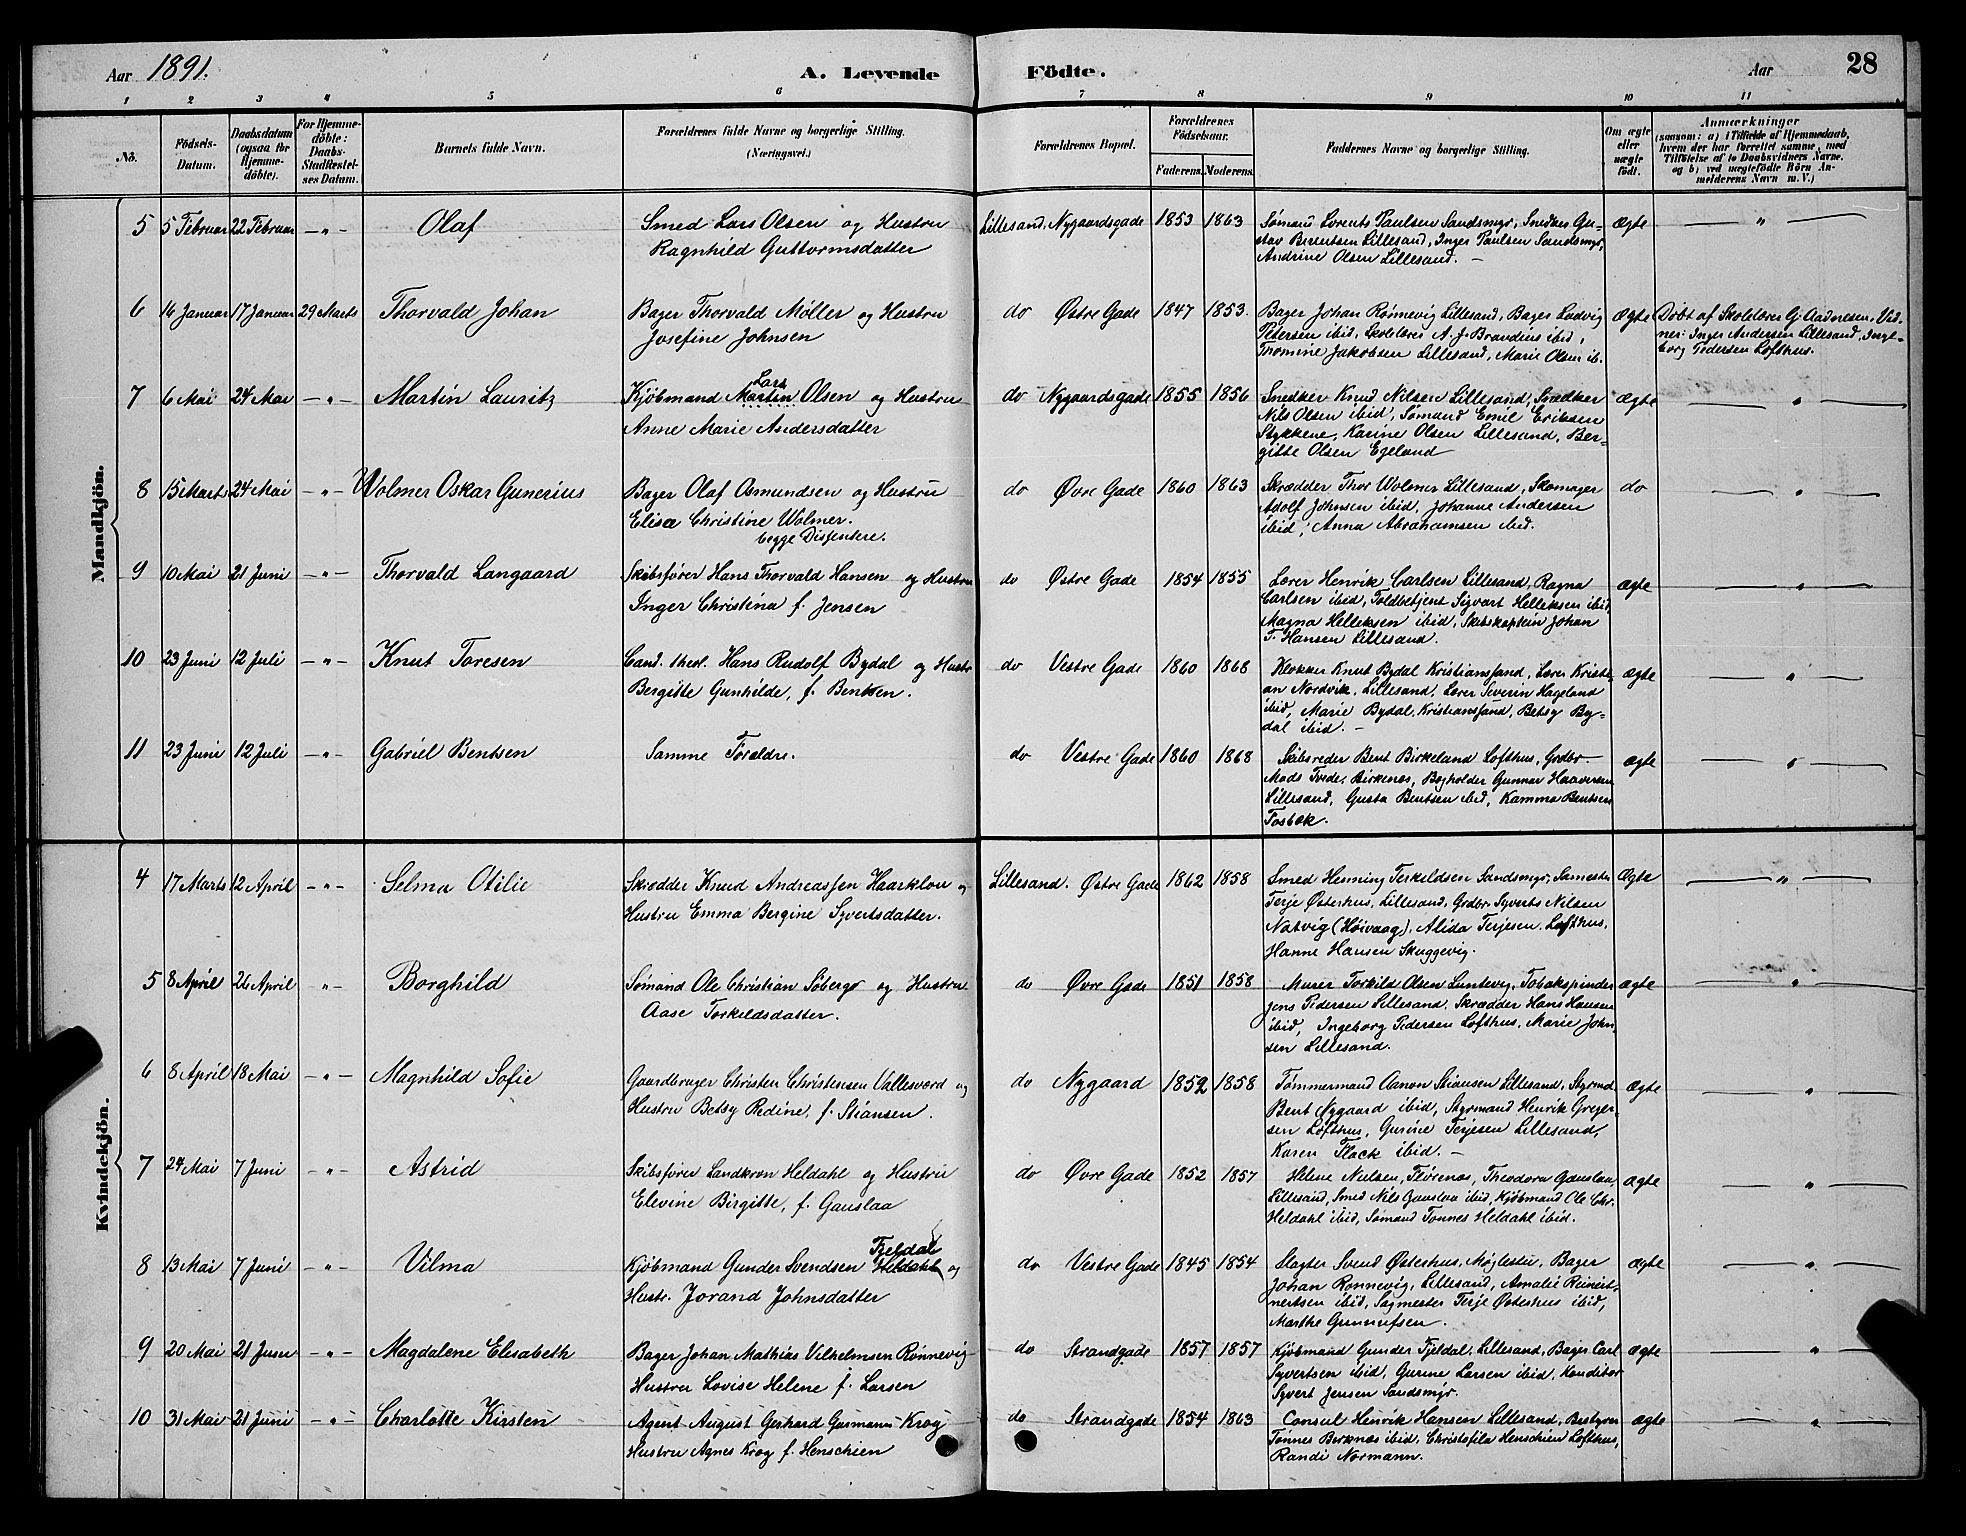 Aar 1891. A. Levende Födte. Aar 28
1 2 3 4 5 6 7 8 9 10 11
No. Födsels-Datum. Daabsdatum (ogsaa for Hjemmedöbte). For Hjemmedöbte: Daabs-Stadfæstelses Datum. Barnets fulde Navn. Forældrenes fulde Navne og borgerlige Stilling. (Næringsvei.) Forældrenes Bopæl. Forældrenes Födselsaar. Faderens. Moderens. Faddernes Navne og borgerlige Stilling. Om ægte eller uægte födt. Anmærkninger (saasom: a) i Tilfælde af Hjemmedaab, hvem der har forrettet samme, med Tilföielse af to Daabsvidners Navne. og b) ved uægtefödte Börn Anmelderens Navn m. V.)
Mandkjön.
5 5 Februar 22 Februar -"- Olaf Smed Lars Olsen og Hustru Lillesand, Nygaardsgade 1853 1863 Sømand Lorents Paulsen Sandsmyr, Snedker Gu- ægte — " —
Ragnhild Guttormsdatter stav Berentsen Lillesand, Inger Paulsen Sandsmyr,
Andrine Olsen Lillesand. —
6 16 Januar 17 Januar 29 Marts Thorvald Johan Bager Thorvald Møller og Hustru do Østre Gade 1847 1853. Bager Johan Rønnevig Lillesand, Bager Ludvig ægte Døbt af Skolelærer G. Aadnesen. Vid-
Josefine Johnsen Petersen ibid, Skolelærer A. J. Brandius ibid, ner: Inger Andersen Lillesand, Inge-
Thomine Jakobsen Lillesand, Marie Olsen ib. borg Pedersen Lofthus.
7 6 Mai 24 Mai -"- Martin Lauritz Kjøbmand Martin Lars Olsen og Hustru do Nygaardsgade 1855 1856 Snedker Knud Nilsen Lillesand, Snedker ægte — " —
Anne Marie Andersdatter Nils Olsen ibid, Sømand Emil Eriksen
Stykkene, Karine Olsen Lillesand, Ber-
gitte Olsen Egeland
8 15 Marts 24 Mai -"- Wolmer Oskar Gunerius Bager Olaf Osmundsen og Hustru do Øvre Gade 1860 1863 Skrædder Thor Wolmer Lillesand, Skomager do — " —
Elisa Christine Wolmer. Adolf Johnsen ibid, Johanne Andersen
begge Dissentere. ibid, Anna Abrahamsen ibid.
9 10 Mai 21 Juni -"- Thorvald Langaard Skibsfører Hans Thorvald Hansen og Hustru do Østre Gade 1854 1855 Lærer Henrik Carlsen Lillesand, Ragna ægte — " —
Inger Christina f. Jensen Carlsen ibid, Toldbetjent Sigvart Helleksen ibid
Magna Helleksen ibid, Skibskaptein Johan
T. Hansen Lillesand.
10 23 Juni 12 Juli -"- Knut Toresen Cand. theol. Hans Rudolf Bydal og Hustr do Vestre Gade 1860 1868 Klokker Knut Bydal Kristianssand, Lærer Kristi- ægte — " —
Bergitte Gunhilde, f. Bentsen. an Nordvik, Lillesand, Lærer Severin Hageland
ibid, Marie Bydal, Kristianssand, Betsy By-
dal ibid. —
11 23 Juni 12 Juli -"- Gabriel Bentsen Samme Forældre. do Vestre Gade 1860 1868 Skibsreder Bent Birkeland Lofthus, Grdbr. ægte — " —
Mads Tvede, Birkenes, Bogholder Gunnar Haaversen
Lillesand, Gusta Bentsen ibid, Kamma Bentsen
Fosbæk.
Kvindekjön.
4 17 Marts 12 April -"- Selma Otilie Skrædder Knud Andreassen Haarklou og Lillesand. Østre Gade 1862 1858 Smed Henning Terkeldsen Sandsmyr, Ægte — " —
Hustru Emma Bergine Syvertsdatter. Terje Østerhus, Lillesand, Grdbr. Syverts Nilsen
Natvig (Høivaag), Alida Terjesen, Lofthus,
Hanne Hansen Skuggevig.
5 8 April 26 April -"- Borghild Sømand Ole Christian Søberg og Hustru do Øvre Gade 1851 1858 Murer Torkild Olsen Luntevig, Tobakspinder ægte — " —
Aase Torkeldsdatter. Jens Pedersen Lillesand, Skrædder Hans Hansen
ibid, Ingeborg Pedersen Lofthus, Marie John-
sen Lillesand.
6 8 April 18 Mai -"- Magnhild Sofie Gaardbruger Christen Christensen Vallesverd og do Nygaard 1852 1858 Tømmermand Aanon Stiansen Lillesand, Styrmd. ægte — " —
Hustru Betsy Redine, f. Stiansen. Bent Nygaard ibid, Styrmand Henrik Greger-
sen Lofthus, Gurine Terjesen Lillesand,
Karen Flack ibid. —
7 24 Mai 7 Juni -"- Astrid Skibsfører Landkron Heldahl og Hustru do Øvre Gade 1852 1857 Helene Nielsen, Florenæs, Theodora Gauslaa ægte — " —
Elevine Birgitte, f. Gauslaa Lillesand, Smed Nils Gauslaa ibid, Kjøbmand Ole Chr.
Heldahl ibid, Sømand Tønnes Heldahl ibid.
8 13 Mai 7 Juni -"- Vilma Kjøbmand Gunder Svendsen Heldahl Fjeldal og do Vestre Gade 1845 1854 Slagter Svend Østerhus, Møglestu, Bager ægte — " —
Hustr. Jorand Johnsdatter Johan Rønnevig, Lillesand, Amalie Reinert-
nertsen ibid, Sagmester Terje Østerhus ibid,
Marthe Gunnufsen.
9 20 Mai 21 Juni -"- Magdalene Elisabeth Bager Johan Mathias Vilhelmsen Rønnevig do Strandgade 1857 1857 Kjøbmand Gunder Fjeldal, Lillesand, Bager Carl ægte — " —
Hustru Lovise Helene f. Larsen Syvertsen ibid, Gurine Larsen ibid, Konditor
Syvert Jensen Sandsmyr.
10 31 Mai 21 Juni -"- Charlotte Kirsten Agent August Gerhard Garmann-Krog do Strandgade 1854 1863 Consul Henrik Hansen Lillesand, Bestyrer ægte — " —
Hustru Agnes Krog f. Henschien Tønnes Berknæs ibid, Christofila Henschien Lofthus,
Randi Normann.